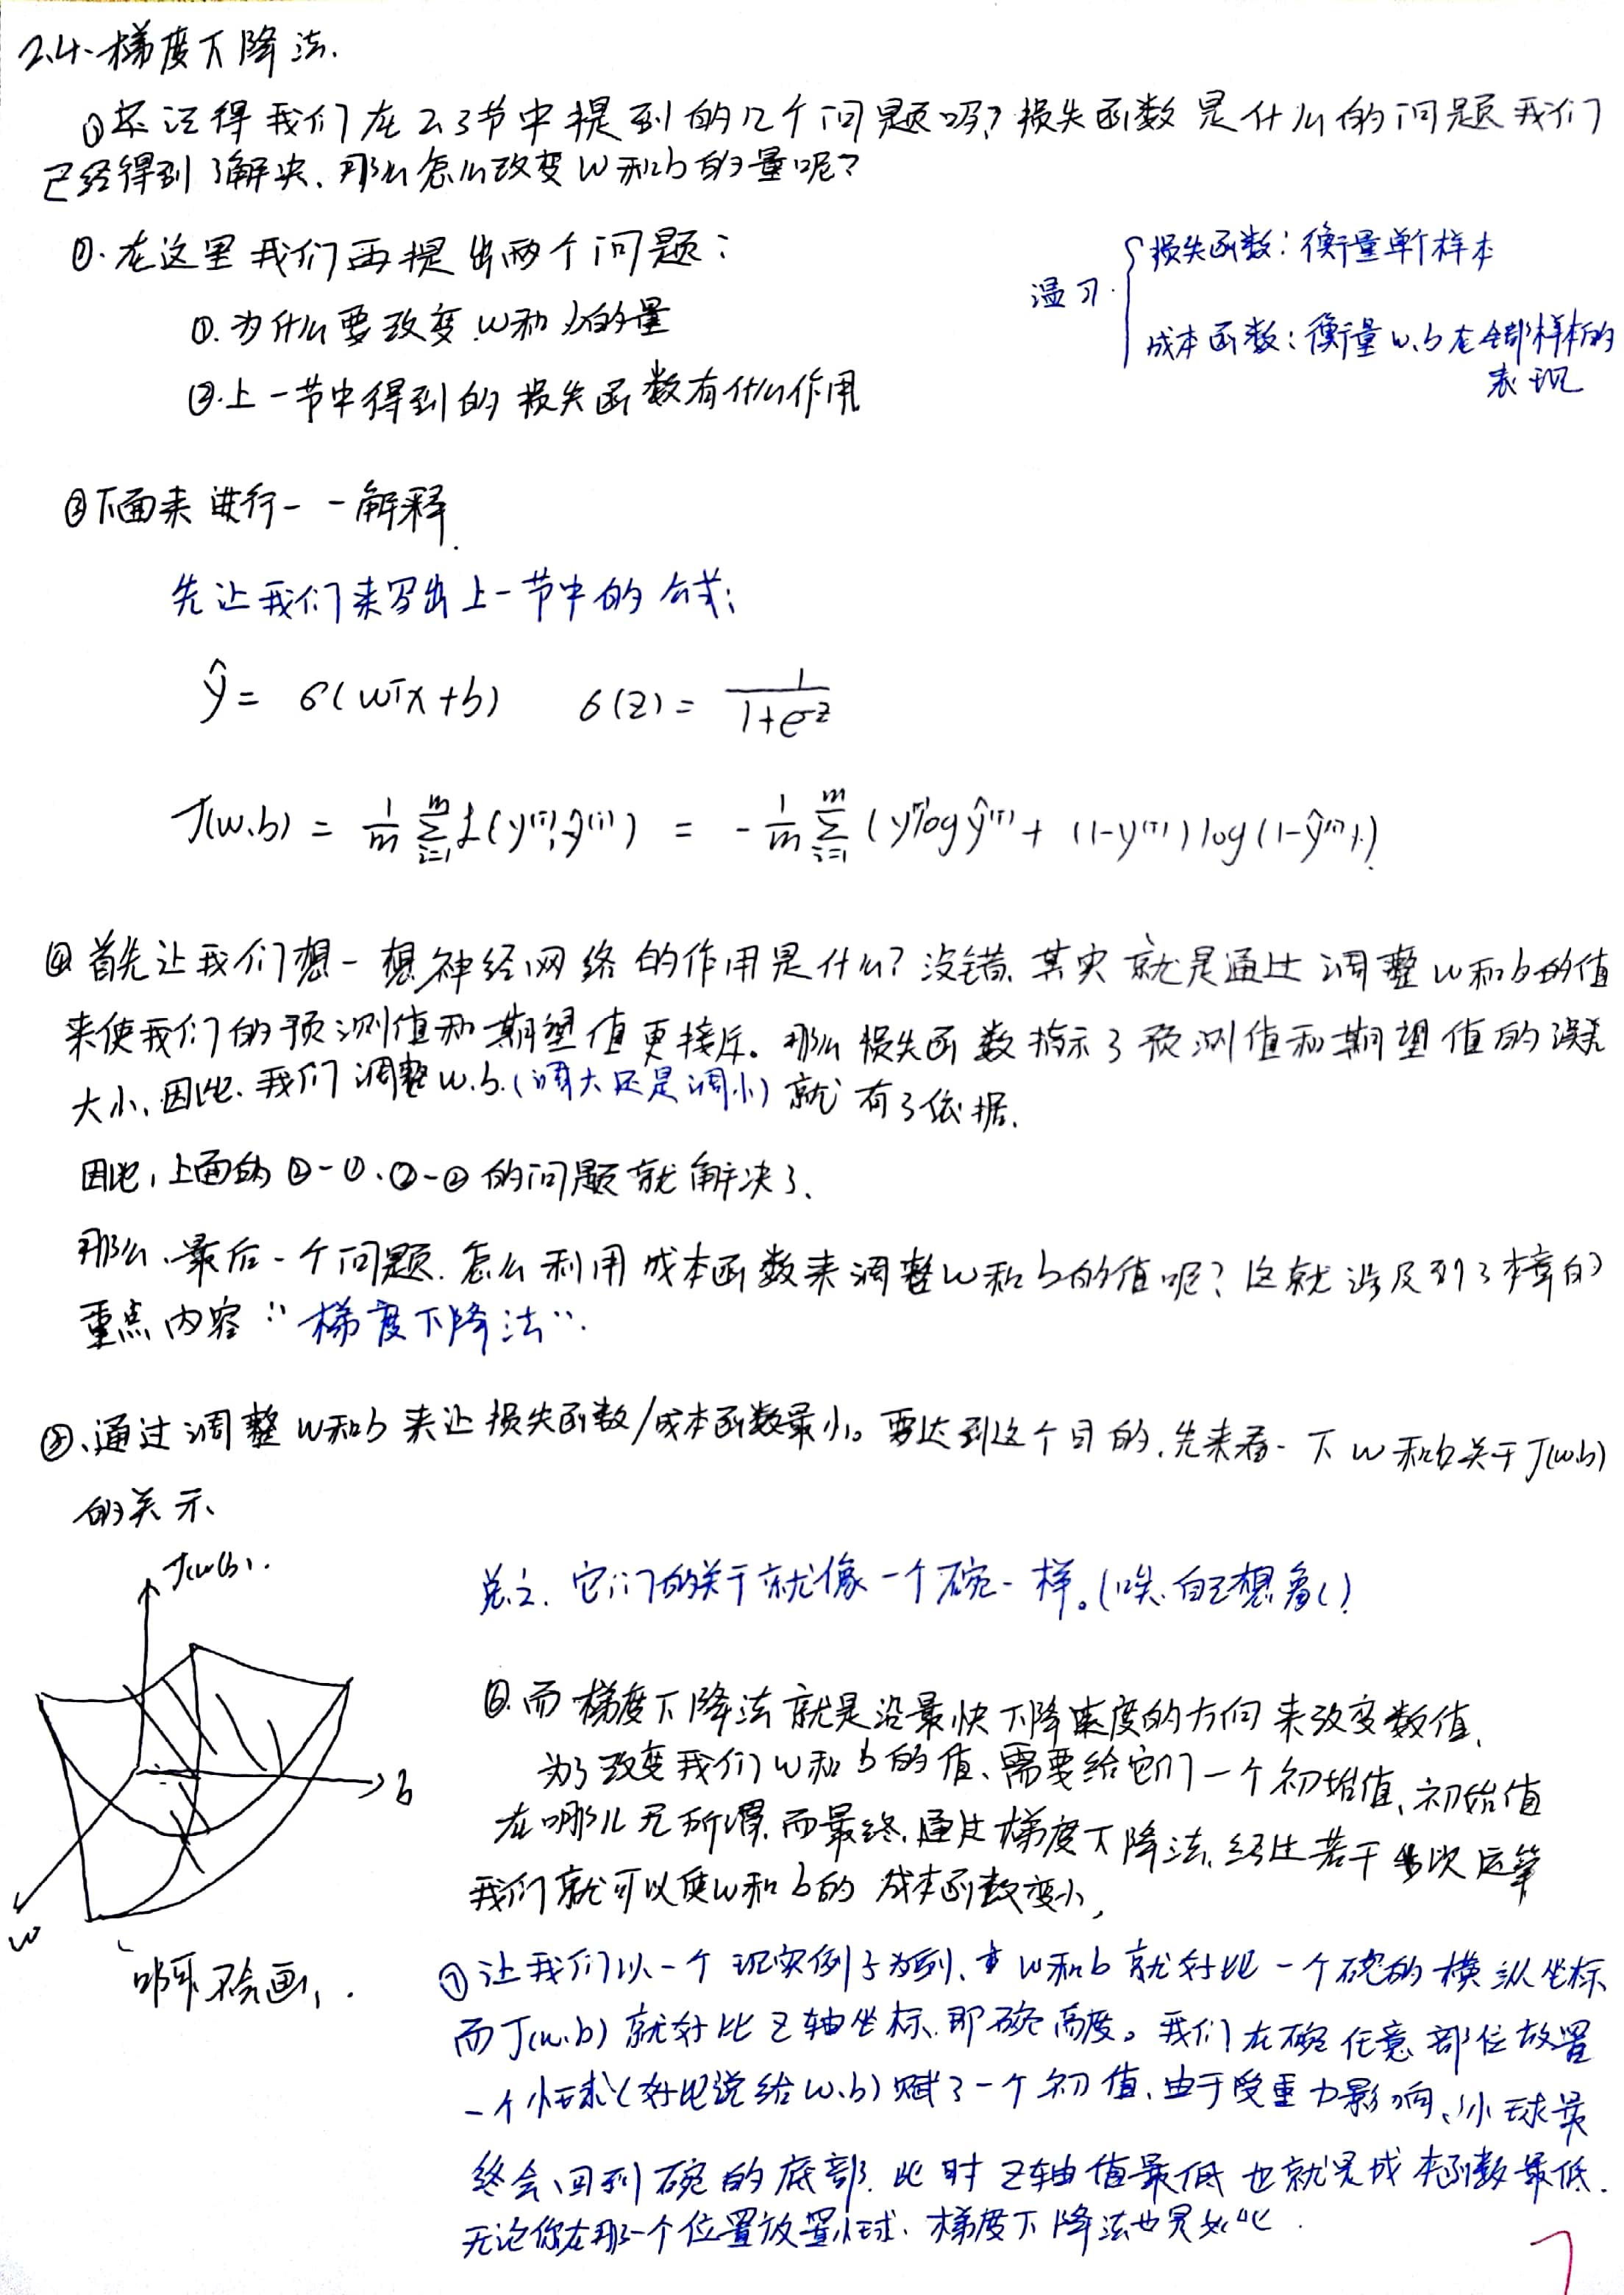 2.4. 梯度下降法.
①还记得我们在2.3节中提到的几个问题吗? 损失函数是什么的问题我们
已经得到了解决、那么怎么改变w和b的量呢?
②. 在这里我们再提出两个问题:
①. 为什么要改变w和b的量
②. 上一节中得到的损失函数有什么作用
温习.
损失函数: 衡量单个样本
成本函数: 衡量w、b在全部样本的
表现
③下面来进行一一解释.
先让我们来写出上一节中的公式:
ŷ = σ(wᵀx+b)   σ(z) = 1/(1+e⁻ᶻ)
J(w.b) = 1/m Σᵢ₌₁ᵐ L(y⁽ⁱ⁾, ŷ⁽ⁱ⁾) = -1/m Σᵢ₌₁ᵐ (y⁽ⁱ⁾log ŷ⁽ⁱ⁾ + (1-y⁽ⁱ⁾) log (1-ŷ⁽ⁱ⁾))
④首先让我们想一想神经网络的作用是什么? 没错、其实就是通过调整w和b的值
来使我们的预测值和期望值更接近。那么损失函数指示了预测值和期望值的误差
大小、因此、我们调整w.b.(调大还是调小)就有了依据.
因此, 上面的②-①、②-②的问题就解决了、
那么、最后一个问题. 怎么利用成本函数来调整w和b的值呢? 这就涉及到了本章的
重点内容 “梯度下降法”.
⑤、通过调整w和b来让损失函数/成本函数最小。要达到这个目的、先来看一下w和b关于J(w.b)
的关示、
J(w.b).
b
w
啊不会画, .
总之. 它们的关于就像一个碗一样。(唉. 自己想象()!
⑥. 而梯度下降法就是沿最快下降速度的方向来改变数值、
为了改变我们w和b的值、需要给它们一个初始值、初始值
在哪儿无所谓. 而最终. 通过梯度下降法、经过若干多次运算
我们就可以使w和b的成本函数变小,
⑦让我们以一个现实例子为例、w和b就好比一个碗的横纵坐标
而J(w.b)就好比Z轴坐标、即碗高度。我们在碗任意部位放置
一个小球(好比说给w.b)赋了一个初值、由于受重力影响、小球最
终会、回到碗的底部. 此时Z轴值最低也就是成本函数最低.
无论你在那一个位置放置小球、梯度下降法也是如此.
7